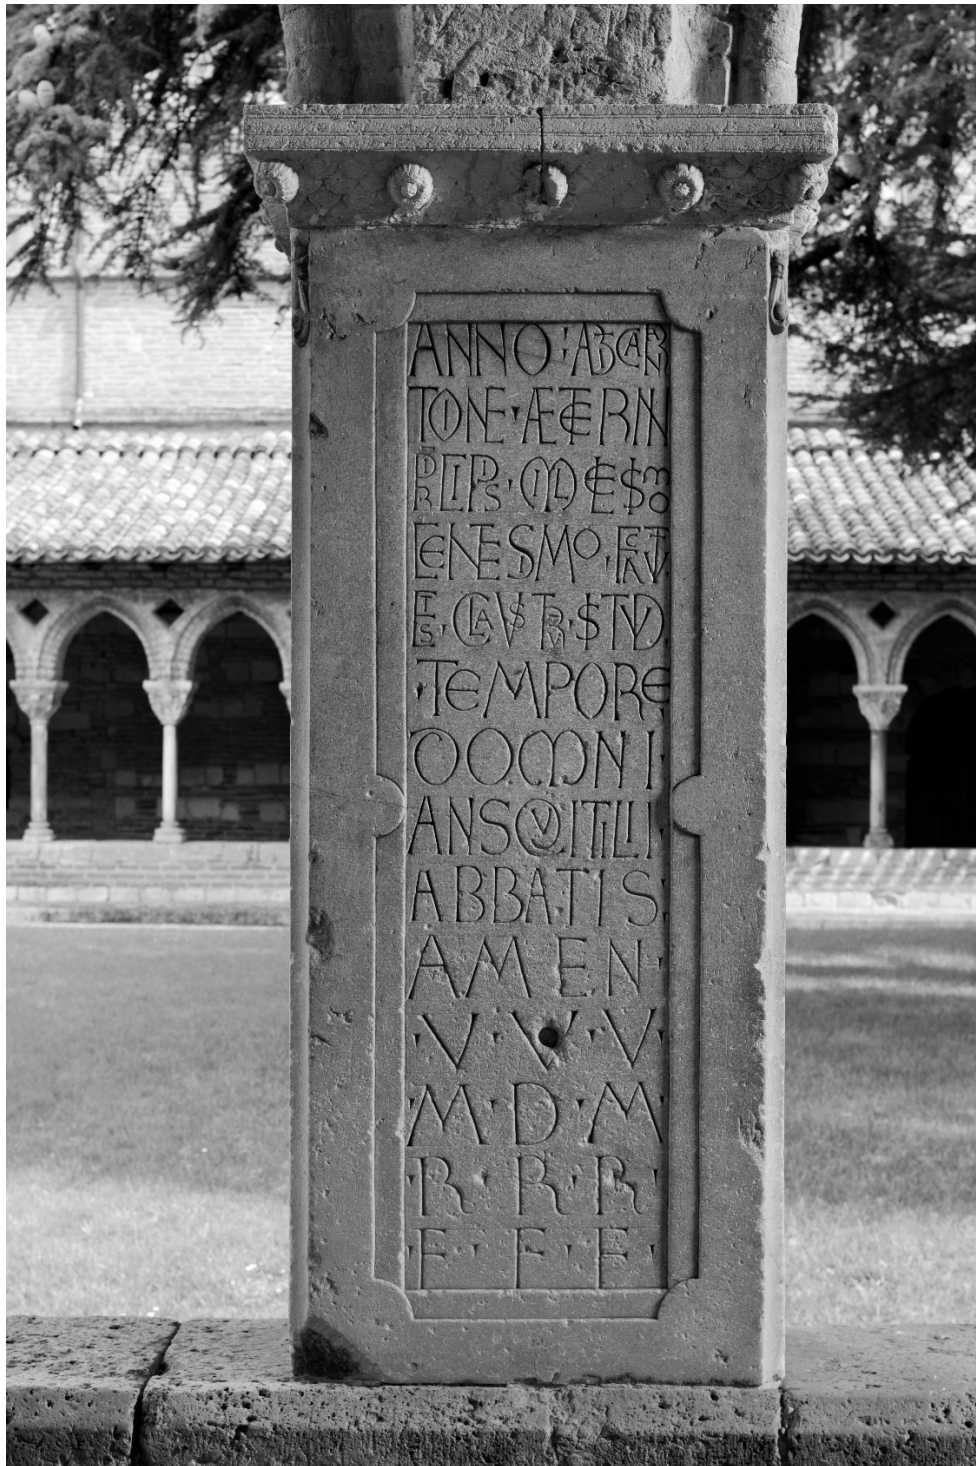 ANNO : AB INCARNA
TIONE · ÆTERNI
PRINCIPIS · MILLESIMO
CENTESIMO · FACTVM
EST · CLAVSTRVM · ISTVD
· TEMPORE ·
DOMNI ·
ANSQVITILII ·
ABBATIS ·
AMEN ·
· V · V · V ·
· M · D · M ·
· R · R · R ·
· F · F · F ·